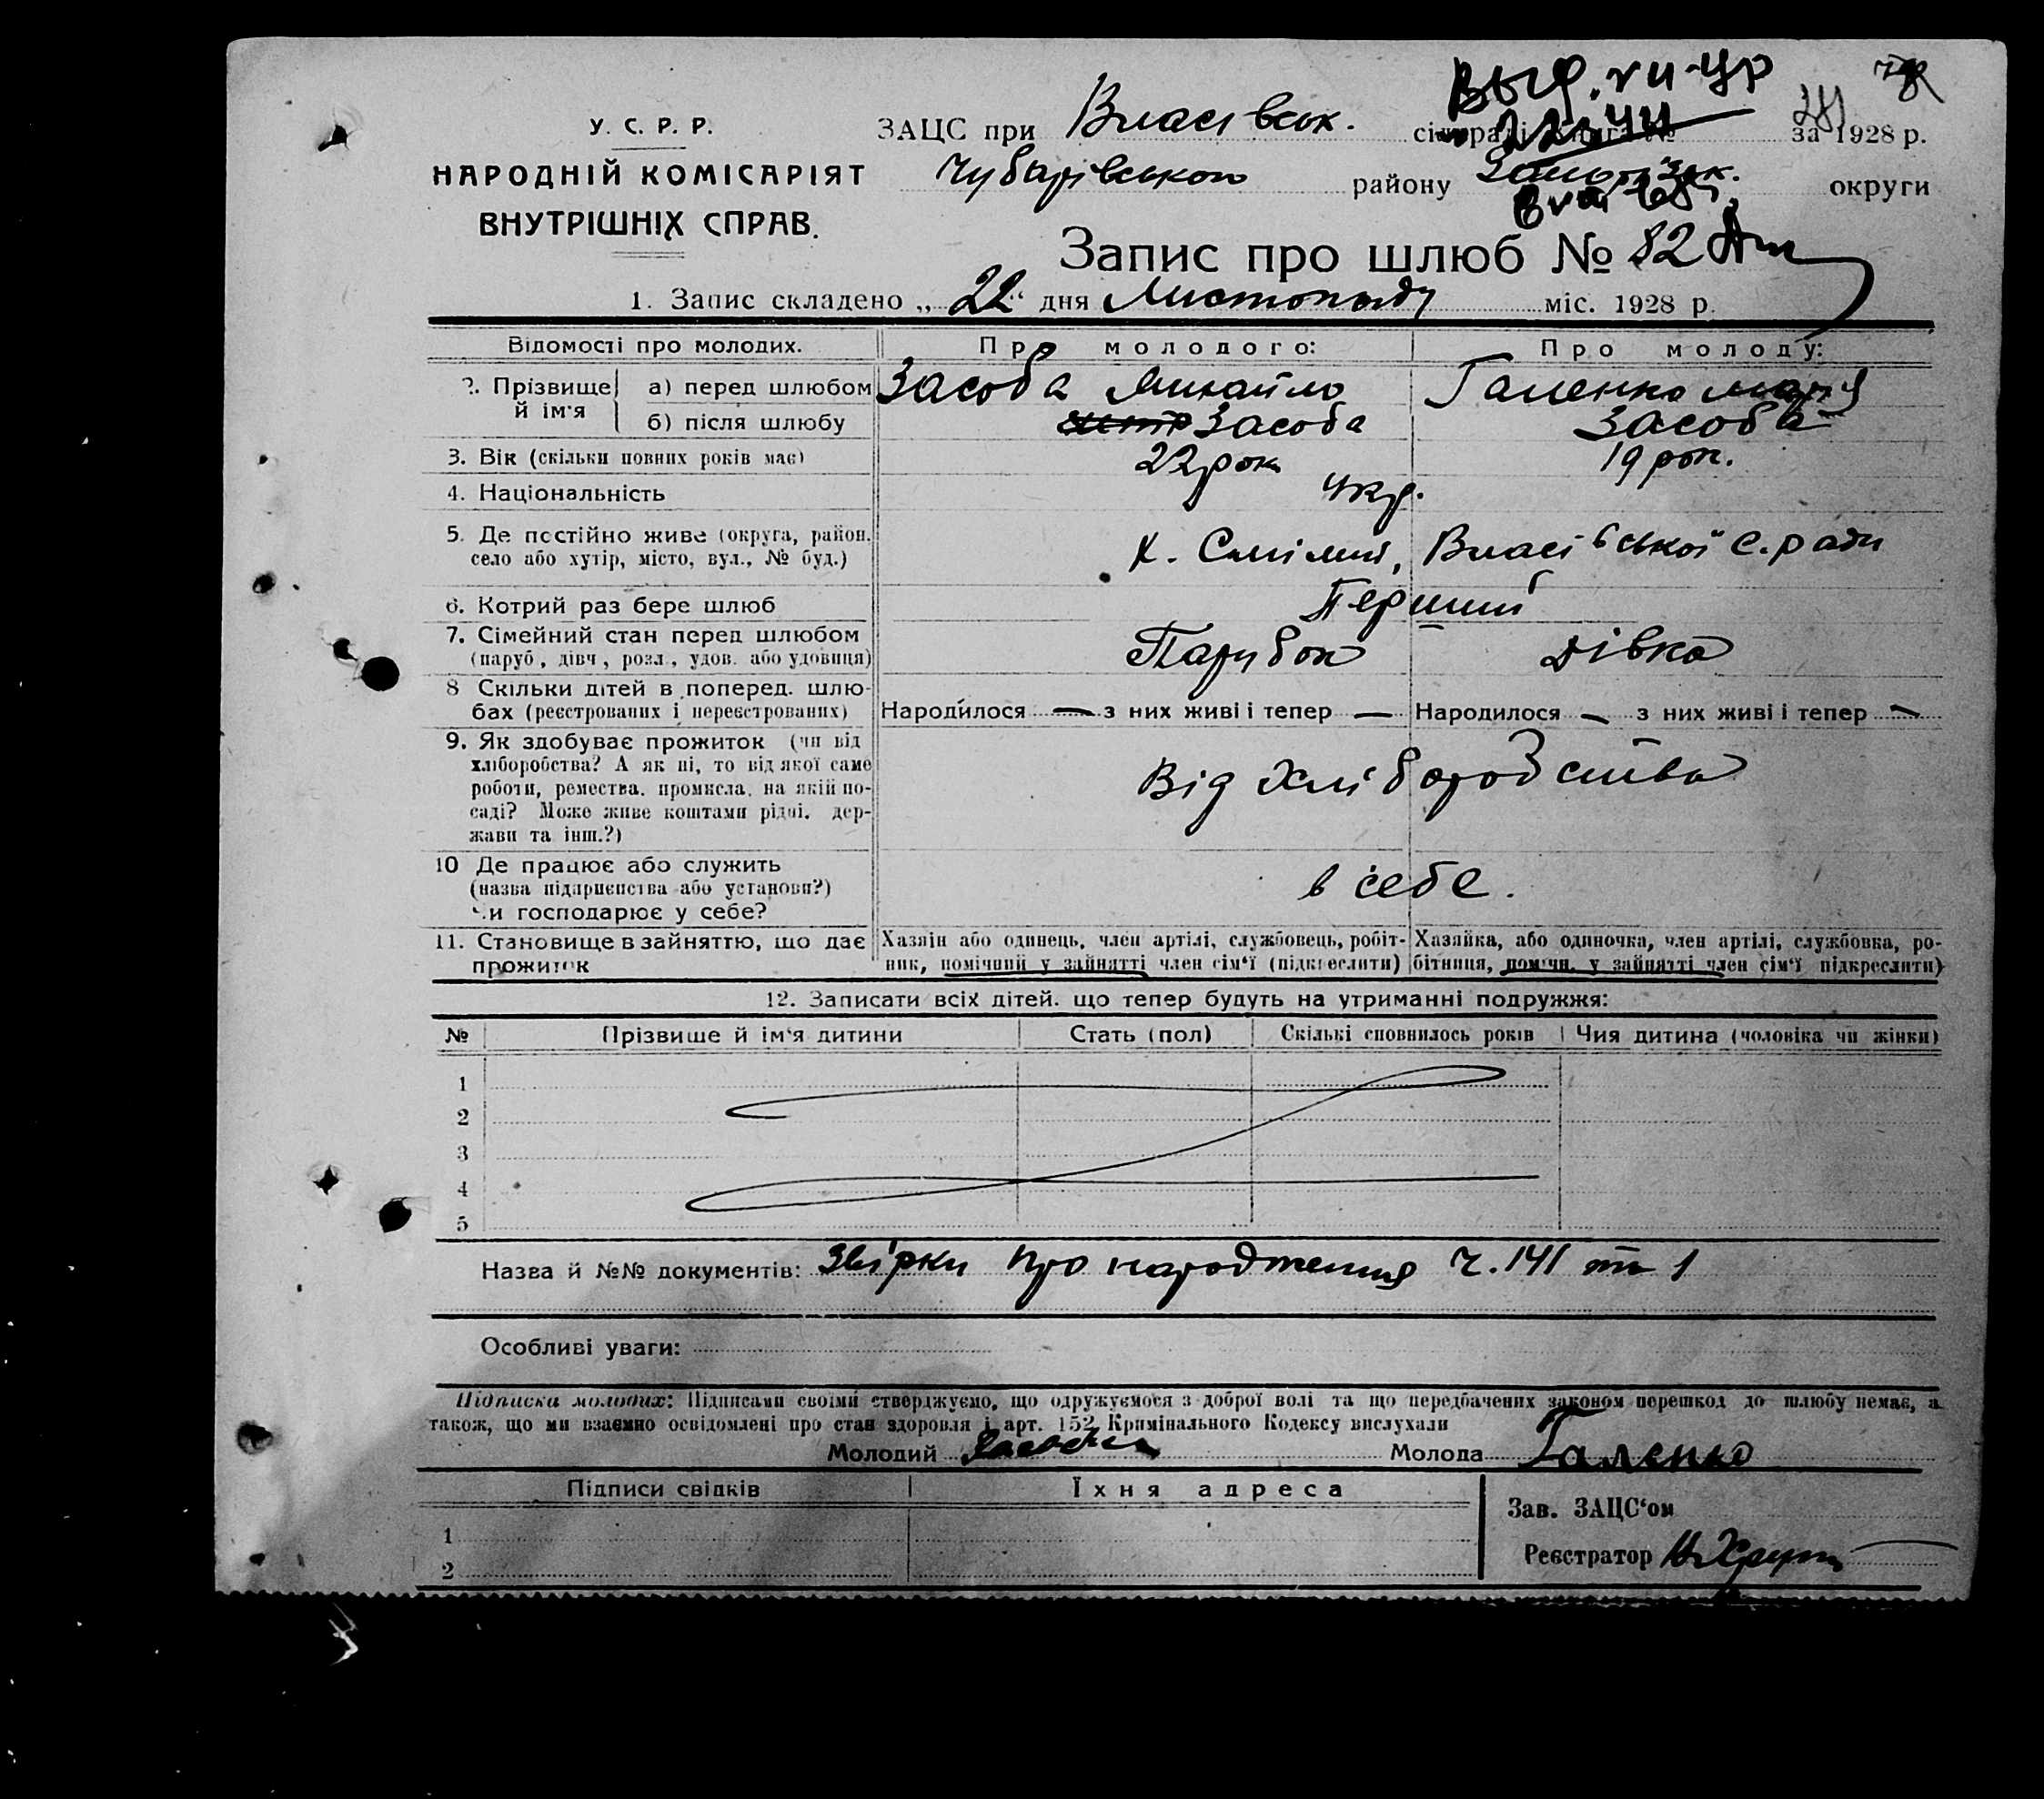 У. С. Р. Р.
НАРОДНІЙ КОМІСАРІЯТ
ВНУТРІШНІХ СПРАВ.
ЗАЦС при Власівськ. сільраді за 1928 р.
Чубарівського району округи
Запис про шлюб № 82
1. Запис складено „ 22 “ дня Листопаду міс. 1928 р.
Відомості про молодих. Про молодого: Про молоду:
2. Прізвище й ім'я а) перед шлюбом Засоба Михайло Галенко Марія
б) після шлюбу Засоба Засоба
3. Вік (скільки повних років має) 22 рок. 19 рок.
4. Національність укр.
5. Де постійно живе (округа, район, х. Смілий, Власівської с. ради
село або хутір, місто, вул., № буд.)
6. Котрий раз бере шлюб Перший
7. Сімейний стан перед шлюбом Парубок Дівка
(паруб., дівч., розл., удов. або удовиця)
8 Скільки дітей в поперед. шлю-
бах (реєстрованих і нереєстрованих) Народилося — з них живі і тепер — Народилося — з них живі і тепер —
9. Як здобуває прожиток (чи від
хліборобства? А як ні, то від якої саме
роботи, ремества, промисла, на якій по-
саді? Може живе коштами рідні, дер-
жави та інш.?)
Від хліборобства
10 Де працює або служить
(назва підприємства або установи?)
чи господарює у себе?
в себе.
11. Становище в зайняттю, що дає
прожиток
Хазяїн або одинець, член артілі, службовець, робіт-
ник, помічний у зайнятті член сім'ї (підкреслити)
Хазяйка, або одиночка, член артілі, службовка, ро-
бітниця, поміч. у зайнятті член сім'ї підкреслити)
12. Записати всіх дітей, що тепер будуть на утриманні подружжя:
№ Прізвище й ім'я дитини Стать (пол) Скількі сповнилось років Чия дитина (чоловіка чи жінки)
1
2
3
4
5
Назва й №№ документів: Звірки про народження ч. 141 та 1
Особливі уваги:
Підписка молодих: Підписами своїми стверджуємо, що одружуємося з доброї волі та що передбачених законом перешкод до шлюбу немає, а
також, що ми взаємно освідомлені про стан здоровля і арт. 152 Кримінального Кодексу вислухали
Молодий Засоба Молода Галенко
Підписи свідків Їхня адреса
1
2
Зав. ЗАЦС'ом
Реєстратор